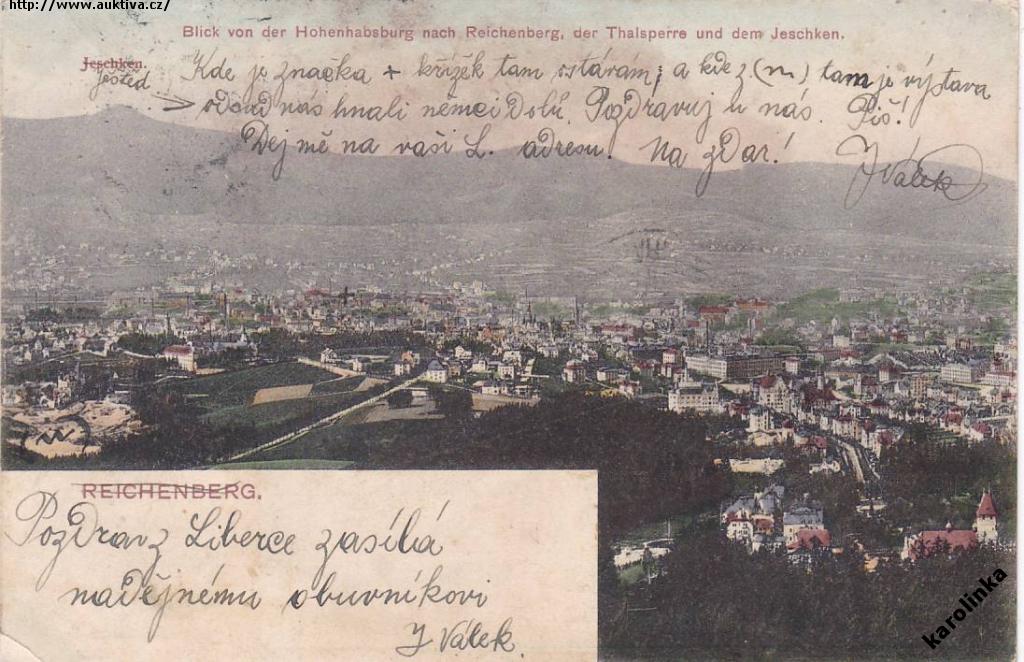 http://www.auktiva.cz/
Blick von der Hohenhabsburg nach Reichenberg, der Thalsperre und dem Jeschken.
Jeschken.
Ješěd
Kde je značka + křížek tam ostávám; a kde z (m) tam je výstava
odsud nás hnali němci Dolů. Pozdravuj u nás. Piš!
Dej mě na vaši L. adresu. Na zdar!
J Válek
REICHENBERG.
Pozdrav z Liberce zasílá
nadějnému obuvníkovi
J Válek.
karolinka